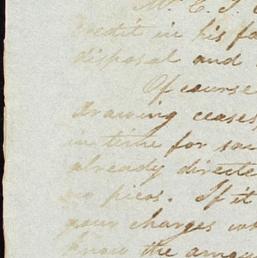 Mr E. S.
credit in his fa
disposal and
Of course
drawing ceases
in time for
already directe
no picos. If it
your charges
know the amou